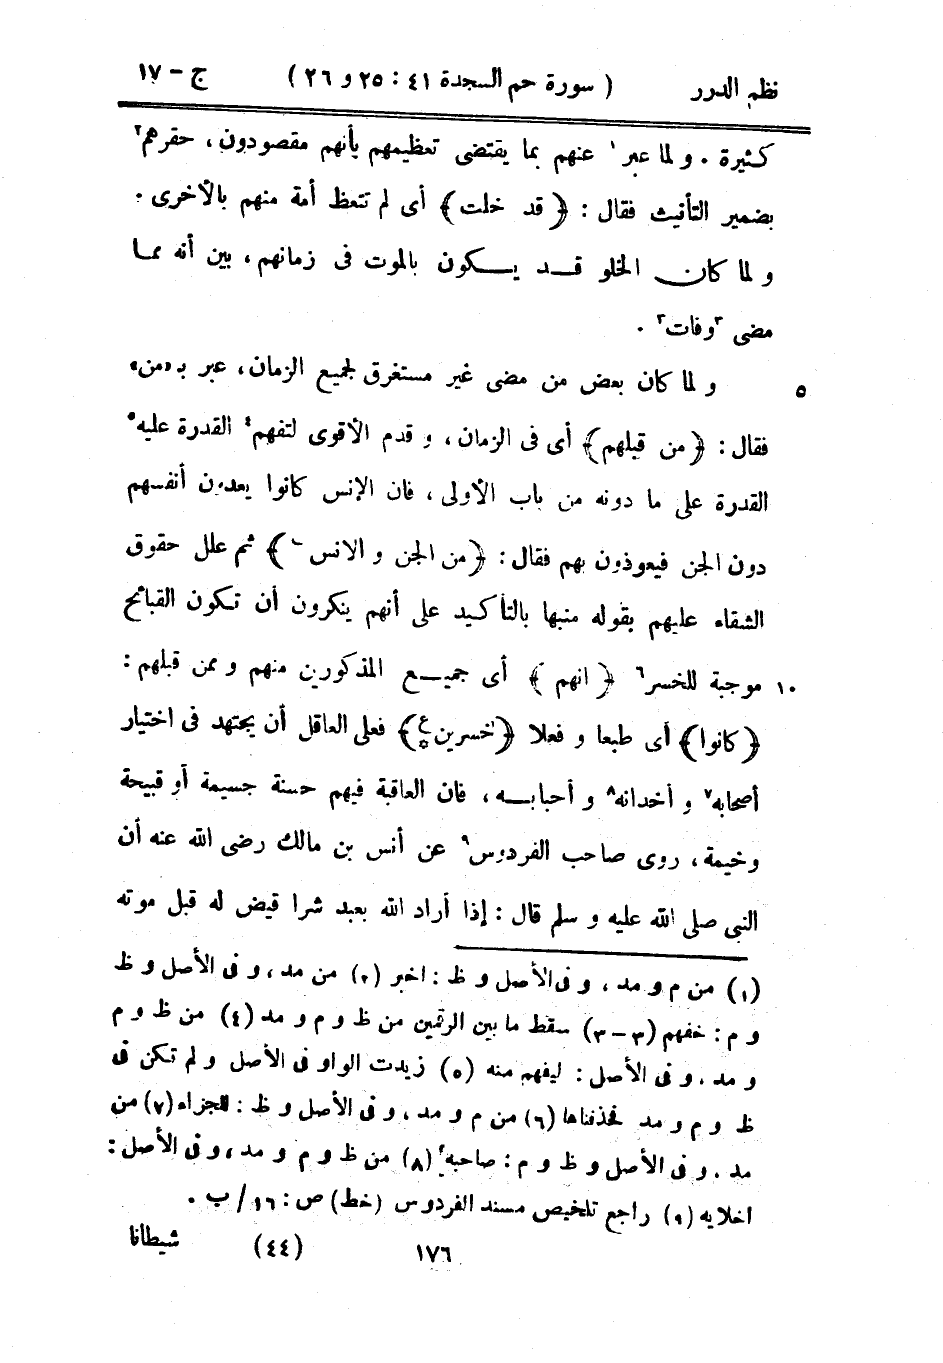 نظم الدرر ( سورة حم السجدة ٤١ : ٢٥ و ٢٦ ) ج – ١٧
كثيرة . و لما عبر١ عنهم بما يقتضى تعظيمهم بأنهم مقصودون ، حقرهم٢
بضمير التأنيث فقال : ﴿ قد خلت ﴾ أى لم تتعظ أمة منهم بالأخرى .
و لما كان الخلو قد يكون بالموت فى زمانهم ، بين أنه مما
مضى ٣وفات٣ .
و لما كان بعض من مضى غير مستغرق لجميع الزمان ، عبر بـ «من» ٥
فقال : ﴿ من قبلهم ﴾ أى فى الزمان ، و قدم الأقوى لتفهم٤ القدرة عليه٥
القدرة على ما دونه من باب الأولى ، فان الإنس كانوا يعدون أنفسهم
دون الجن فيعوذون بهم فقال : ﴿ من الجن و الانس ۚ ﴾ ثم علل حقوق
الشقاء عليهم بقوله منبها بالتأكيد على أنهم ينكرون أن تكون القبائح
موجبة للخسر٦ ﴿ انهم ﴾ أى جميع المذكورين منهم و ممن قبلهم : ١٠
﴿ كانوا ﴾ أى طبعا و فعلا ﴿ خسرين ع ﴾ فعلى العاقل أن يجتهد فى اختيار
أصحابه٧ و أخدانه٨ و أحبابه ، فان العاقبة فيهم حسنة جسيمة أو قبيحة
وخيمة ، روى صاحب الفردوس٩ عن أنس بن مالك رضى الله عنه أن
النبى صلى الله عليه و سلم قال : إذا أراد الله بعبد شرا قيض له قبل موته
(١) من م و مد ، و فى الأصل و ظ : اخبر (٢) من مد ، و فى الأصل و ظ
و م : خفهم (٣ – ٣) سقط ما بين الرقمين من ظ و م و مد (٤) من ظ و م
و مد ، و فى الأصل : ليفهم منه (٥) زيدت الواو فى الأصل و لم تكن فى
ظ و م و مد فحذفناها (٦) من م و مد ، و فى الأصل و ظ : للجزاء (٧) من
مد . و فى الأصل و ظ و م : صاحبه (٨) من ظ و م و مد ، و فى الأصل :
اخلايه (٩) راجع تلخيص مسند الفردوس (خط) ص : ١٦ / ب .
١٧٦ (٤٤) شيطانا